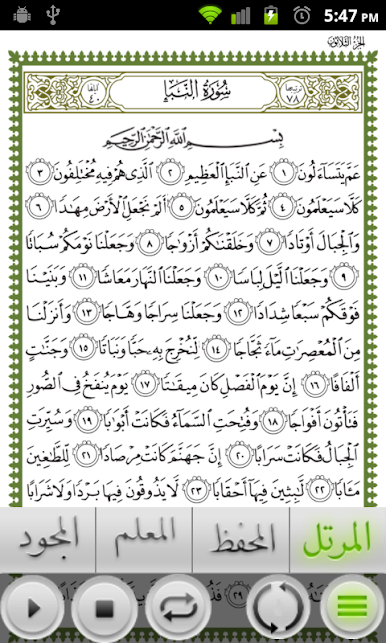 5:47 PM
الجزء الثلاثون
ترتيبها ٧٨
سُورَةُ النَّبَإِ
آياتها ٤٠
بِسْمِ اللَّهِ الرَّحْمَٰنِ الرَّحِيمِ
عَمَّ يَتَسَاءَلُونَ ١ عَنِ النَّبَإِ الْعَظِيمِ ٢ الَّذِي هُمْ فِيهِ مُخْتَلِفُونَ ٣
كَلَّا سَيَعْلَمُونَ ٤ ثُمَّ كَلَّا سَيَعْلَمُونَ ٥ أَلَمْ نَجْعَلِ الْأَرْضَ مِهَادًا ٦
وَالْجِبَالَ أَوْتَادًا ٧ وَخَلَقْنَاكُمْ أَزْوَاجًا ٨ وَجَعَلْنَا نَوْمَكُمْ سُبَاتًا
٩ وَجَعَلْنَا اللَّيْلَ لِبَاسًا ١٠ وَجَعَلْنَا النَّهَارَ مَعَاشًا ١١ وَبَنَيْنَا
فَوْقَكُمْ سَبْعًا شِدَادًا ١٢ وَجَعَلْنَا سِرَاجًا وَهَّاجًا ١٣ وَأَنْزَلْنَا
مِنَ الْمُعْصِرَاتِ مَاءً ثَجَّاجًا ١٤ لِنُخْرِجَ بِهِ حَبًّا وَنَبَاتًا ١٥ وَجَنَّاتٍ
أَلْفَافًا ١٦ إِنَّ يَوْمَ الْفَصْلِ كَانَ مِيقَاتًا ١٧ يَوْمَ يُنْفَخُ فِي الصُّورِ
فَتَأْتُونَ أَفْوَاجًا ١٨ وَفُتِحَتِ السَّمَاءُ فَكَانَتْ أَبْوَابًا ١٩ وَسُيِّرَتِ
الْجِبَالُ فَكَانَتْ سَرَابًا ٢٠ إِنَّ جَهَنَّمَ كَانَتْ مِرْصَادًا ٢١ لِلطَّاغِينَ
مَآبًا ٢٢ لَابِثِينَ فِيهَا أَحْقَابًا ٢٣ لَا يَذُوقُونَ فِيهَا بَرْدًا وَلَا شَرَابًا
المرتل
المحفظ
المعلم
المجود
٢٩